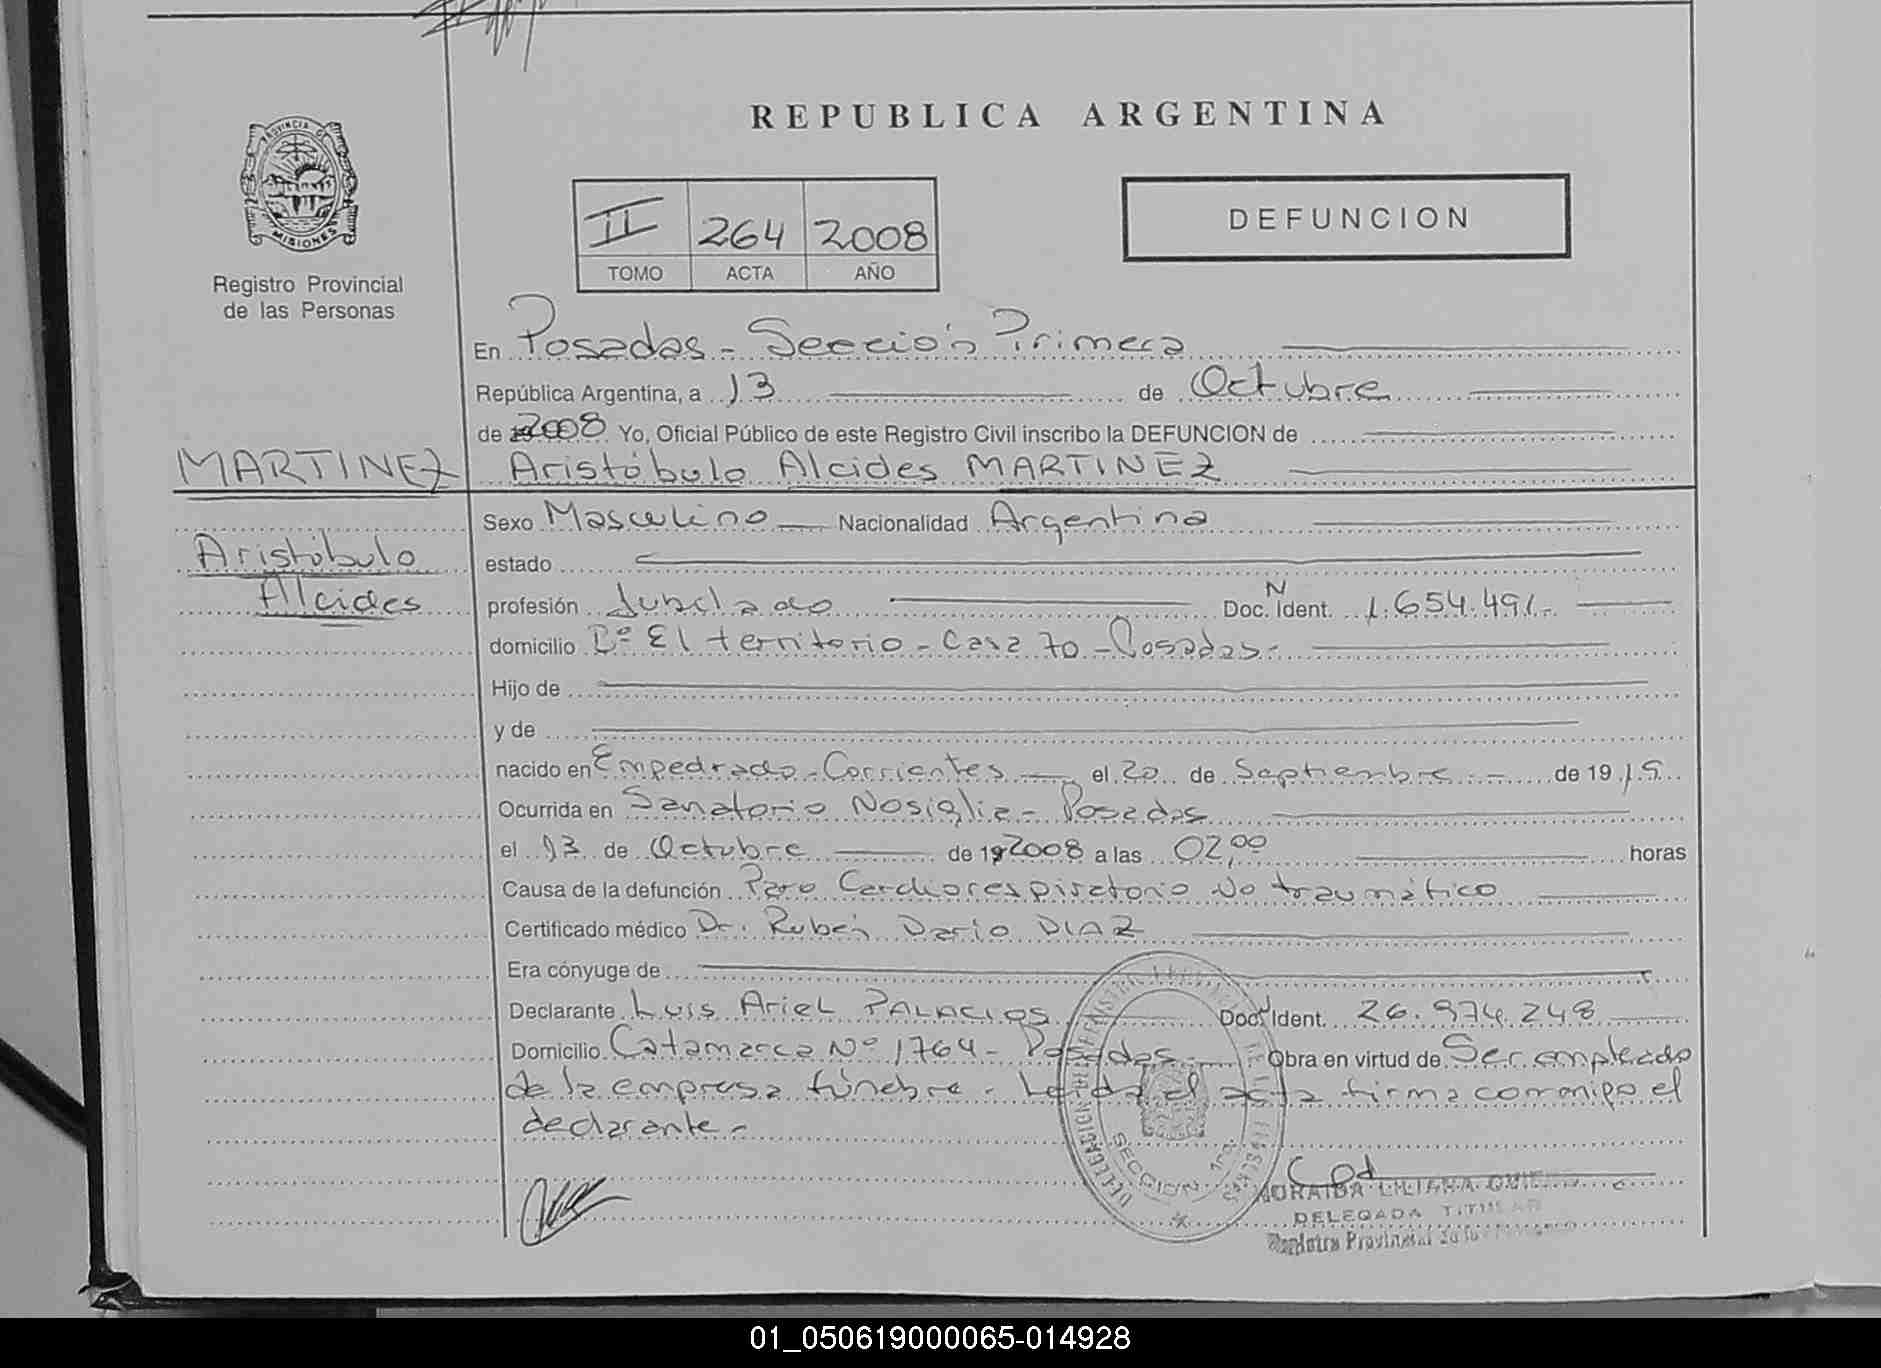 REPUBLICA ARGENTINA
PROVINCIA DE
MISIONES
Registro Provincial
de las Personas
II 264 2008
TOMO ACTA AÑO
DEFUNCION
En Posadas - Sección Primera
República Argentina, a 13 de Octubre
de 2008 Yo, Oficial Público de este Registro Civil inscribo la DEFUNCION de
MARTINEZ
Aristóbulo Alcides MARTINEZ
Aristóbulo
Alcides
Sexo Masculino Nacionalidad Argentina
estado
profesión Jubilado Doc. N Ident. 1.654.491.-
domicilio Bº El territorio - Casa 70 - Posadas.-
Hijo de
y de
nacido en Empedrado - Corrientes el 20 de Septiembre - de 19 19
Ocurrida en Sanatorio Nosiglia - Posadas
el 13 de Octubre de 192008 a las 02,00 horas
Causa de la defunción Paro Cardiorespiratorio No traumático
Certificado médico Dr. Rubén Darío DIAZ
Era cónyuge de
Declarante Luis Ariel PALACIOS Doc. Ident. 26.974.248
Domicilio Catamarca Nº 1764 - Posadas.- Obra en virtud de Ser empleado
de la empresa fúnebre - Leída el acta firma conmigo el
declarante -
SECCION 1ra
LILIANA
DELEGADA TITULAR
Registro Provincial de las
01_050619000065-014928